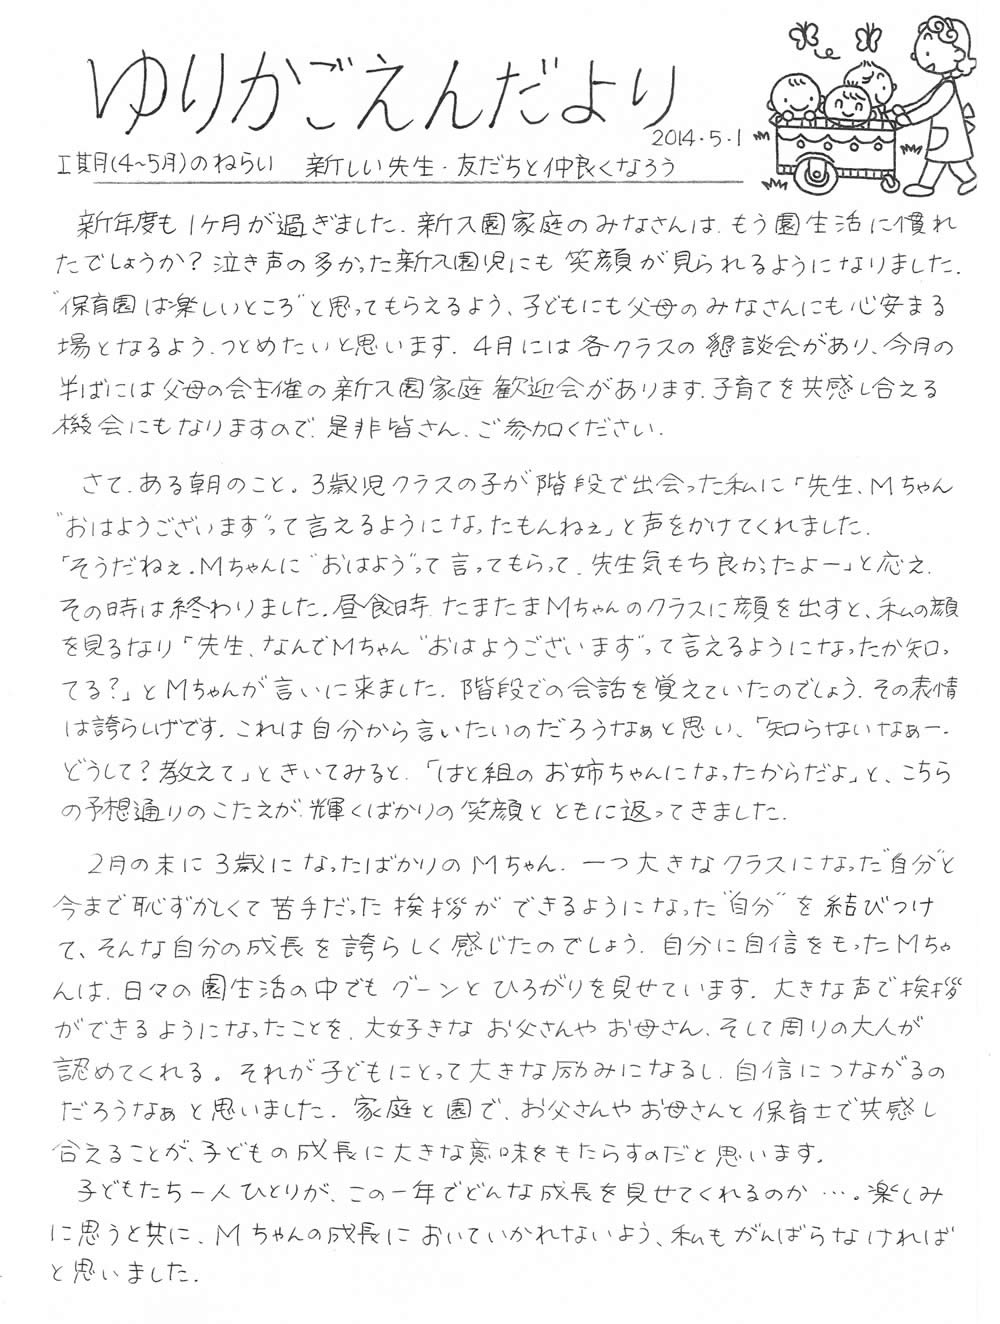 ゆりかごえんだより
2014・5・1
I期(4~5月)のねらい 新しい先生・友だちと仲良くなろう
新年度も1ケ月が過ぎました。新入園家庭のみなさんは、もう園生活に慣れ
たでしょうか?泣き声の多かった新入園児にも笑顔が見られるようになりました。
"保育園は楽しいところ"と思ってもらえるよう、子どもにも父母のみなさんにも心安まる
場となるよう、つとめたいと思います。4月には各クラスの懇談会があり、今月の
半ばには父母の会主催の新入園家庭歓迎会があります。子育てを共感し合える
機会にもなりますので、是非皆さん、ご参加ください。
さて、ある朝のこと。3歳児クラスの子が階段で出会った私に「先生、Mちゃん
"おはようございます"って言えるようになったもんねぇ」と声をかけてくれました。
「そうだねぇ。Mちゃんに"おはよう"って言ってもらって、先生気もち良かったよー」と応え、
その時は終わりました。昼食時、たまたまMちゃんのクラスに顔を出すと、私の顔
を見るなり「先生、なんでMちゃん"おはようございます"って言えるようになったか知っ
てる?」とMちゃんが言いに来ました。階段での会話を覚えていたのでしょう。その表情
は誇らしげです。これは自分から言いたいのだろうなぁと思い、「知らないなぁー。
どうして?教えて」ときいてみると、「はと組のお姉ちゃんになったからだよ」と、こちら
の予想通りのこたえが、輝くばかりの笑顔とともに返ってきました。
2月の末に3歳になったばかりのMちゃん。一つ大きなクラスになった"自分"と
今まで恥ずかしくて苦手だった挨拶ができるようになった"自分"を結びつけ
て、そんな自分の成長を誇らしく感じたのでしょう。自分に自信をもったMちゃ
んは、日々の園生活の中でもグーンとひろがりを見せています。大きな声で挨拶
ができるようになったことを、大好きなお父さんやお母さん、そして周りの大人が
認めてくれる。それが子どもにとって大きな励みになるし、自信につながるの
だろうなぁと思いました。家庭と園で、お父さんやお母さんと保育士で共感し
合えることが、子どもの成長に大きな意味をもたらすのだと思います。
子どもたち一人ひとりが、この一年でどんな成長を見せてくれるのか…。楽しみ
に思うと共に、Mちゃんの成長においていかれないよう、私もがんばらなければ
と思いました。